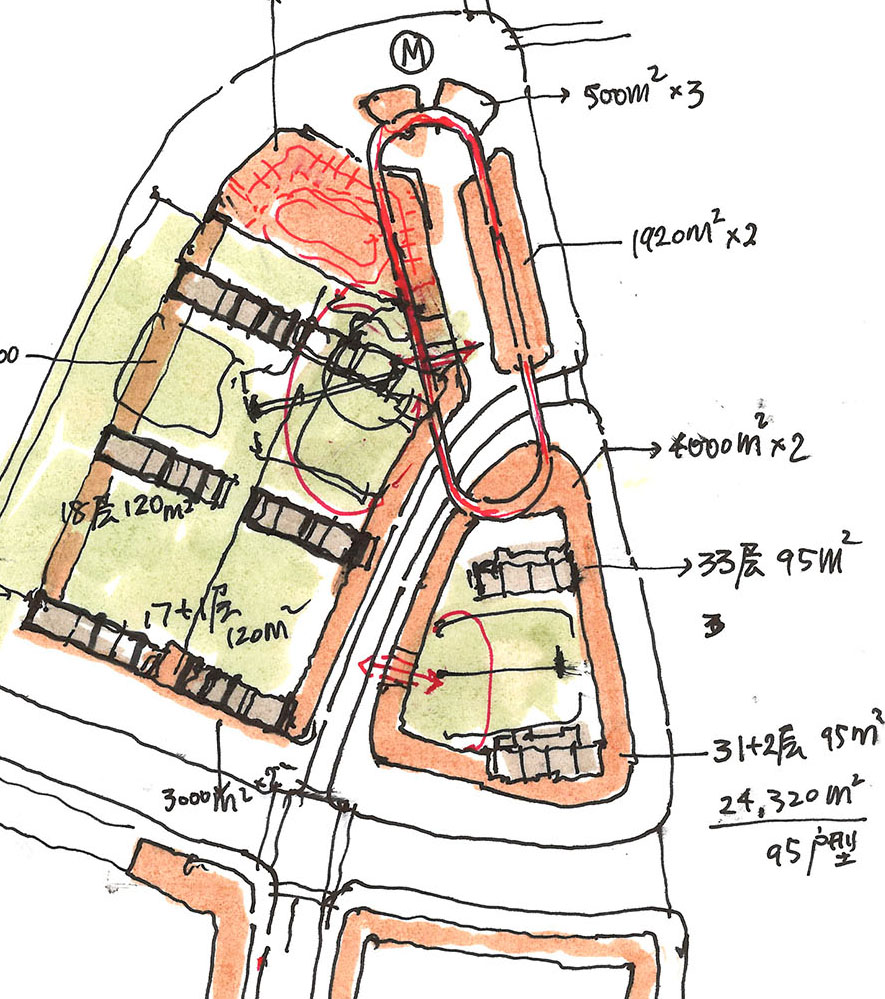 M
500m²×3
1920m²×2
00
4000m²×2
18层120m²
33层 95m²
17+1层
120m²
31+2层 95m²
3000m²×2
24,320m²
95户型